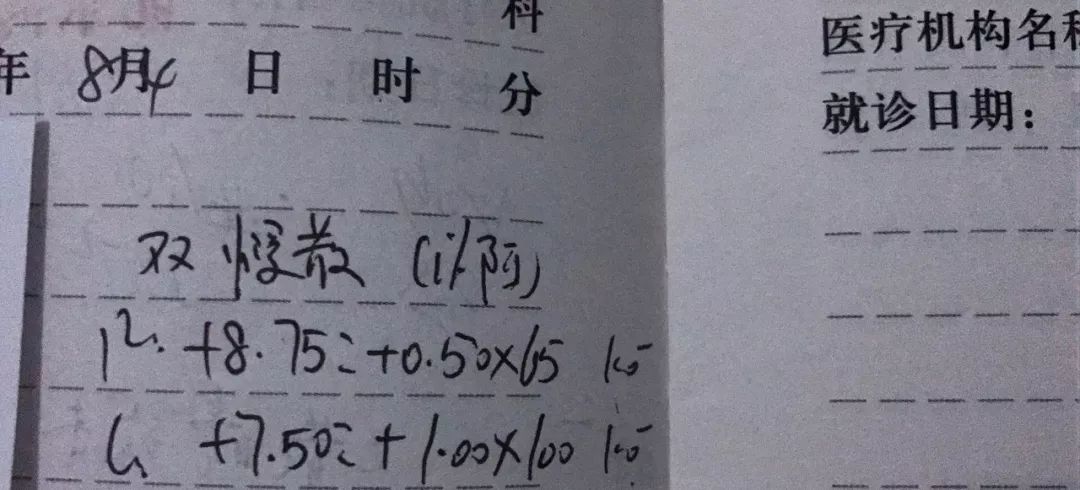 科
年 8月4 日 时 分
双 慢散 (1%阿)
R. +8.75=+0.50×65 1.0
L. +7.50=+1.00×100 1.0
医疗机构名称
就诊日期：